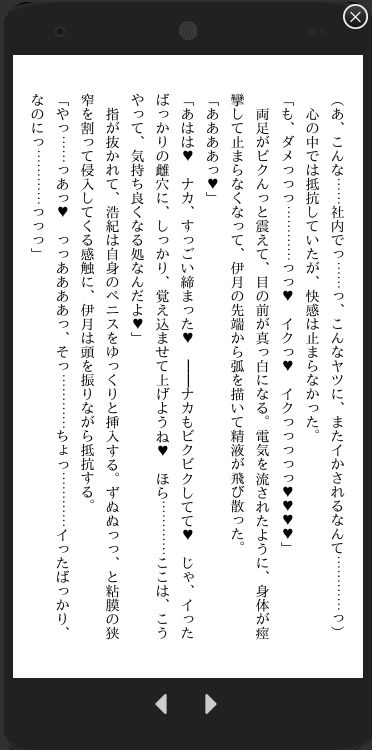 （あ、こんな……社内でっ……っ、こんなヤツに、またイかされるなんて…………っ）
心の中では抵抗していたが、快感は止まらなかった。
「も、ダメっっっ…………っっ♥　イクっ♥　イクっっっっっ♥♥♥♥」
両足がビクんっと震えて、目の前が真っ白になる。電気を流されたように、身体が痙
攣して止まらなくなって、伊月の先端から弧を描いて精液が飛び散った。
「ああああっ♥」
「あはは♥　ナカ、すっごい締まった♥　――ナカもビクビクしてて♥　じゃ、イった
ばっかりの雌穴に、しっかり、覚え込ませて上げようね♥　ほら…………ここは、こう
やって、気持ち良くなる処なんだよ♥」
指が抜かれて、浩紀は自身のペニスをゆっくりと挿入する。ずぬぬっっ、と粘膜の狭
窄を割って侵入してくる感触に、伊月は頭を振りながら抵抗する。
「やっ……っあっ♥　っっああああっ、そっ…………ちょっ…………イったばっかり、
なのにっ…………っっっ」